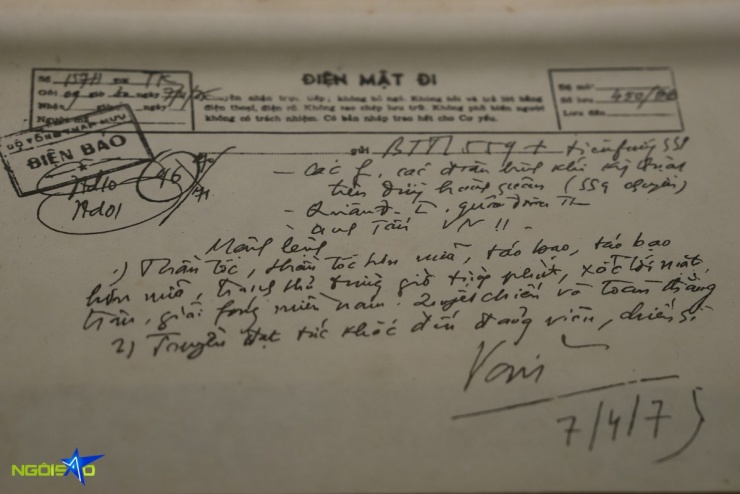 Số 157H TK
ĐIỆN MẬT ĐI
Gửi ngày 7/4/75
truyền nhận trực tiếp; không bỏ ngỏ. Không hỏi và trả lời bằng
điện thoại, điện rõ. Không sao chép lưu trữ. Không phổ biến người
không có trách nhiệm. Có bản nháp trao hết cho Cơ yếu.
Nhận ngày
Người
Số lưu
Lưu đến
BỘ TỔNG THAM MƯU
ĐIỆN BÁO
gửi BTTL 559 +
46
- các f, các đơn binh khí kỹ thuật
trên đường hành quân (559 chuyển)
- Quân đoàn
VN !!
Mệnh lệnh
1) Thần tốc, thần tốc hơn nữa, táo bạo, táo bạo
hơn nữa, tranh thủ từng giờ từng phút, xốc tới mặt
trận, giải fóng miền nam. Quyết chiến và toàn thắng
2) Truyền đạt tức khắc đến đảng viên, chiến sĩ
Văn
7/4/75
NGÔISAO